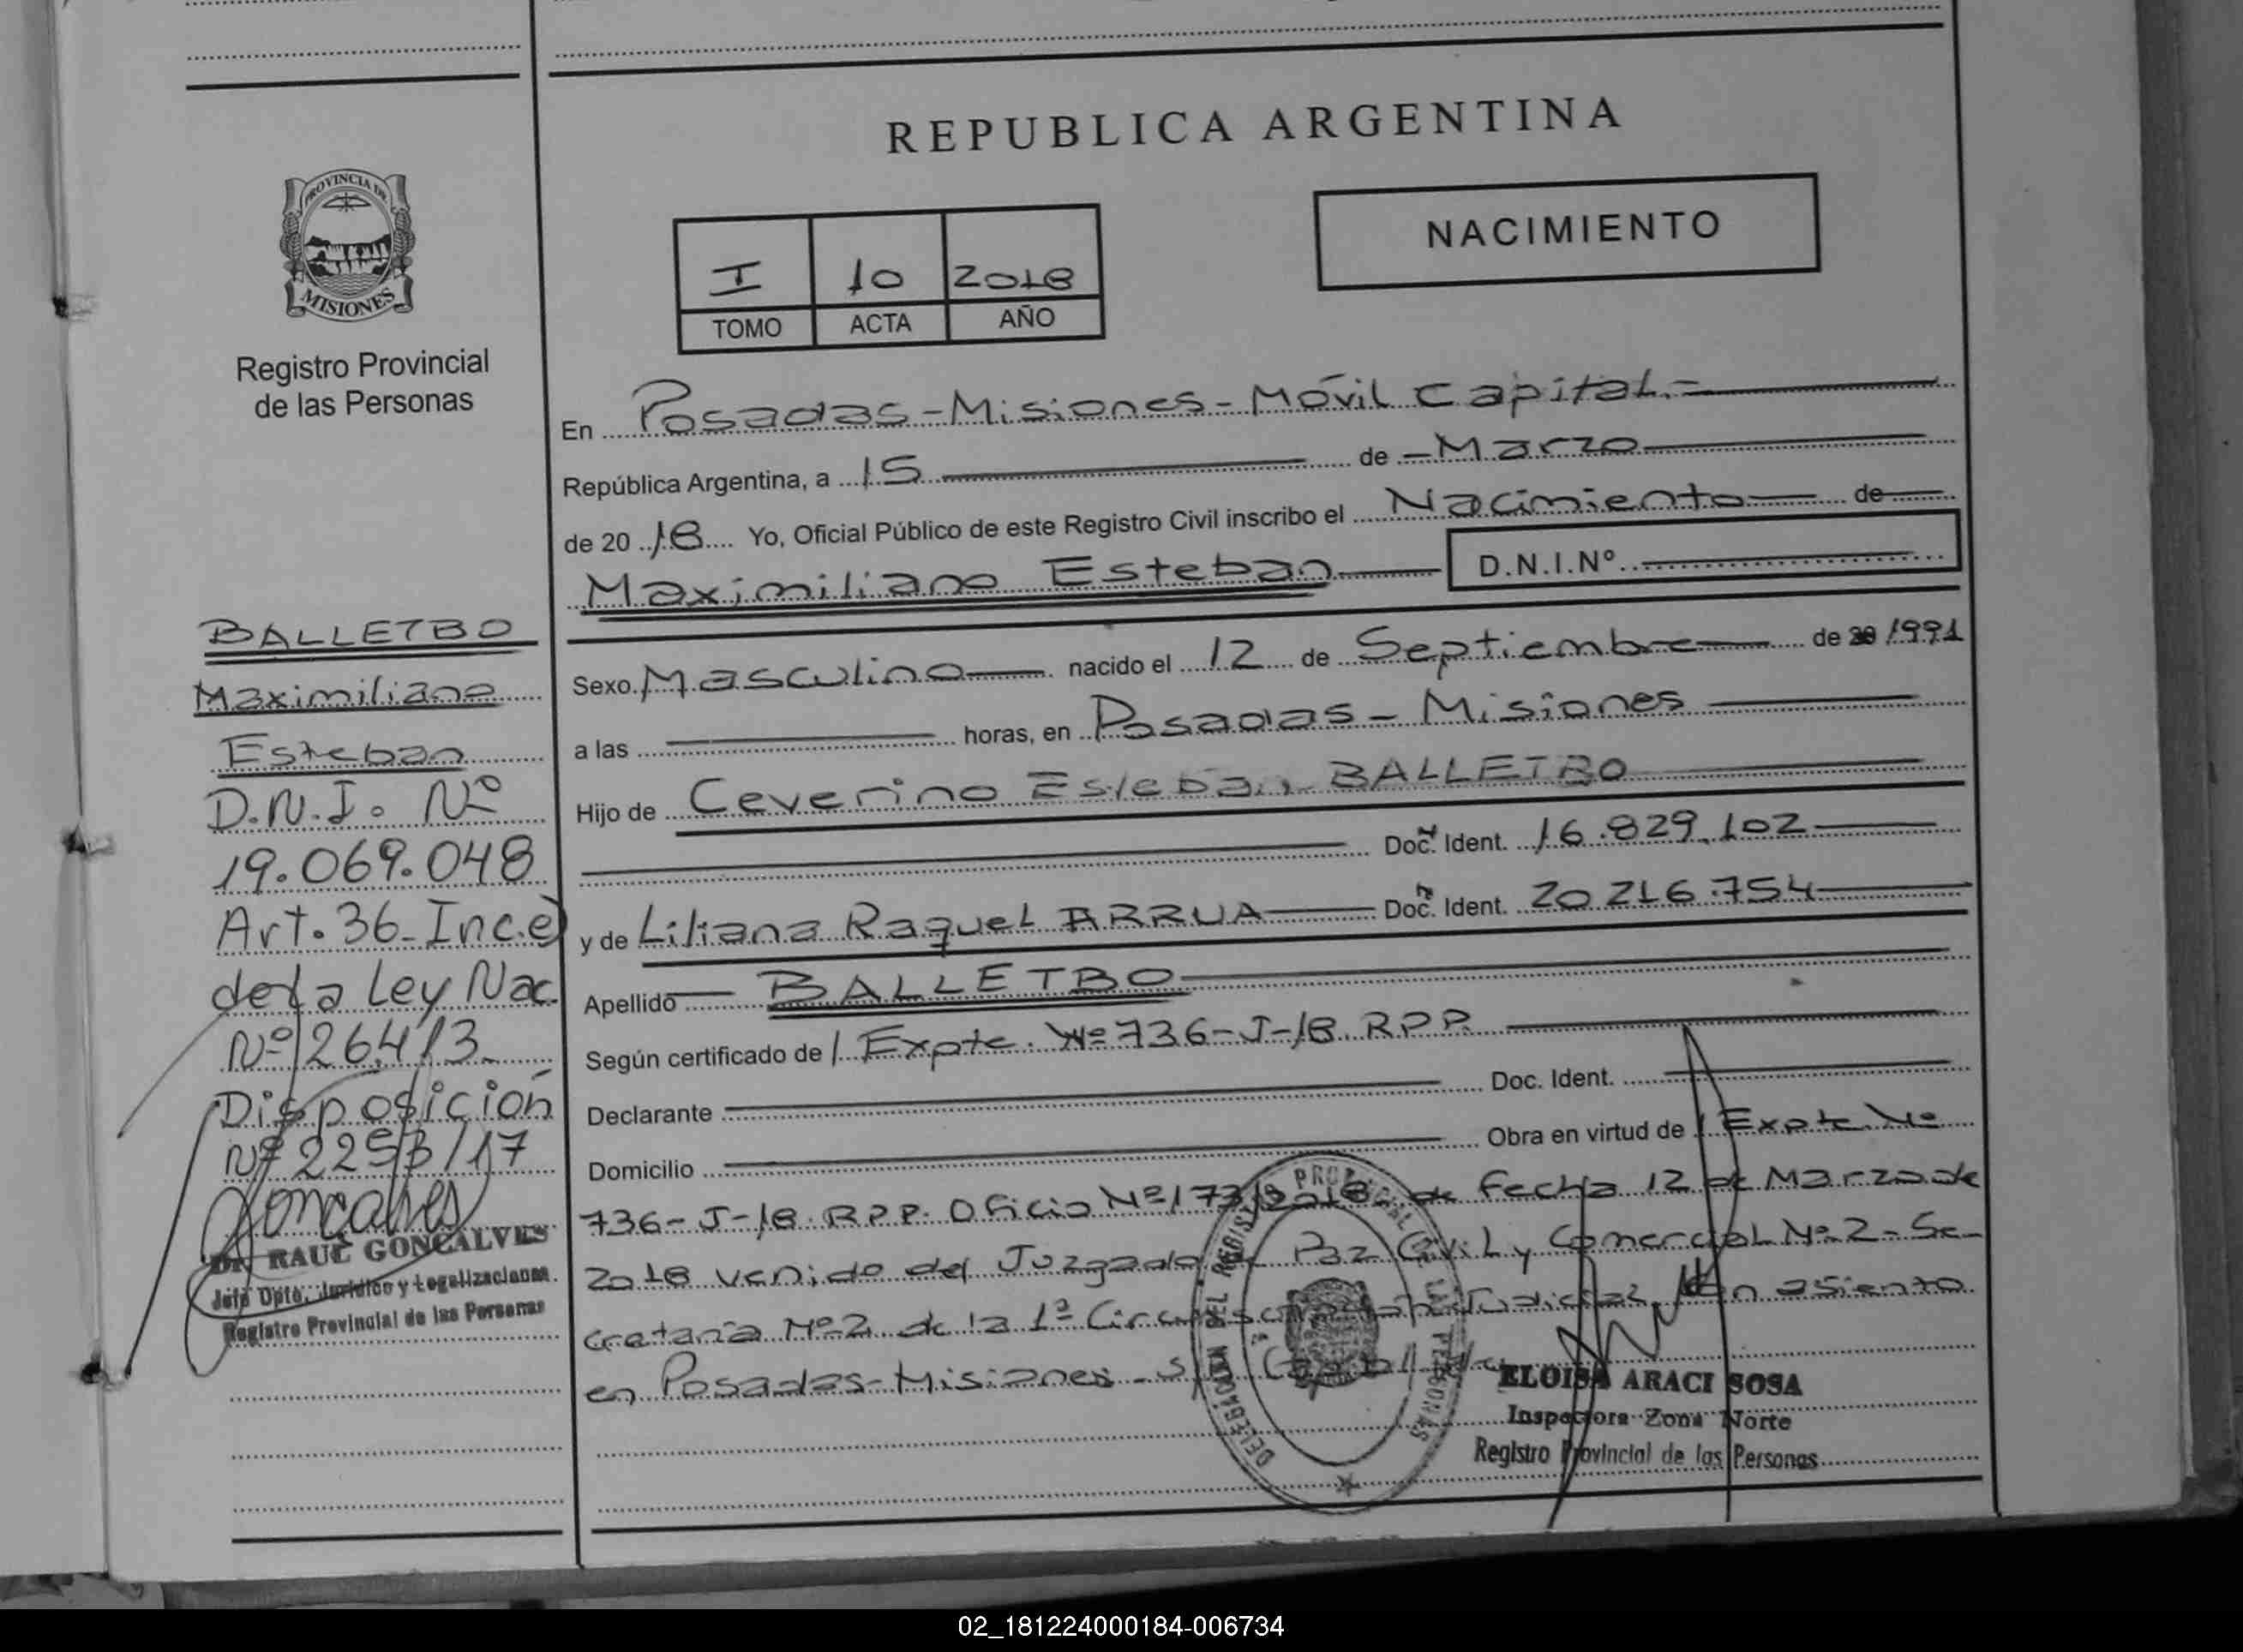 REPUBLICA ARGENTINA
NACIMIENTO
I 10 2018
TOMO ACTA AÑO
PROVINCIA DE
MISIONES
Registro Provincial
de las Personas
BALLETBO
Maximiliano
Esteban
D.N.I. Nº
19.069.048
Art. 36-Inc.e)
de la Ley Nac.
Nº 26413-
Disposición
Nº 2253/17
Goncalves
Dr. RAUL GONCALVES
Jefe Dpto. Jurídico y Legalizaciones
Registro Provincial de las Personas
En Posadas-Misiones-Móvil Capital.=
República Argentina, a 15 de Marzo
de 20 18 Yo, Oficial Público de este Registro Civil inscribo el Nacimiento de
Maximiliano Esteban D.N.I.Nº
Sexo Masculino nacido el 12 de Septiembre de 20 /1991
a las horas, en Posadas - Misiones
Hijo de Ceverino Esteban BALLETBO
Doc. Ident. 16.829.102
y de Liliana Raquel ARRUA Doc. Ident. 20 216.754
Apellido BALLETBO
Según certificado de / Expte. Nº 736-J-18.RPP.
Declarante Doc. Ident.
Domicilio Obra en virtud de / Expte. Nº
736-J-18.RPP. Oficio Nº 173/2018 de fecha 12 de Marzo de
2018 venido del Juzgado de Paz Civil y Comercial Nº 2-Se-
cretaria Nº 2 de la 1ª Circunscripción Judicial, con asiento
en Posadas-Misiones-
DELEGACION MOVIL DEL REGISTRO PROVINCIAL DE LAS PERSONAS
ELOISA ARACI SOSA
Inspectora Zona Norte
Registro Provincial de las Personas
02_181224000184-006734